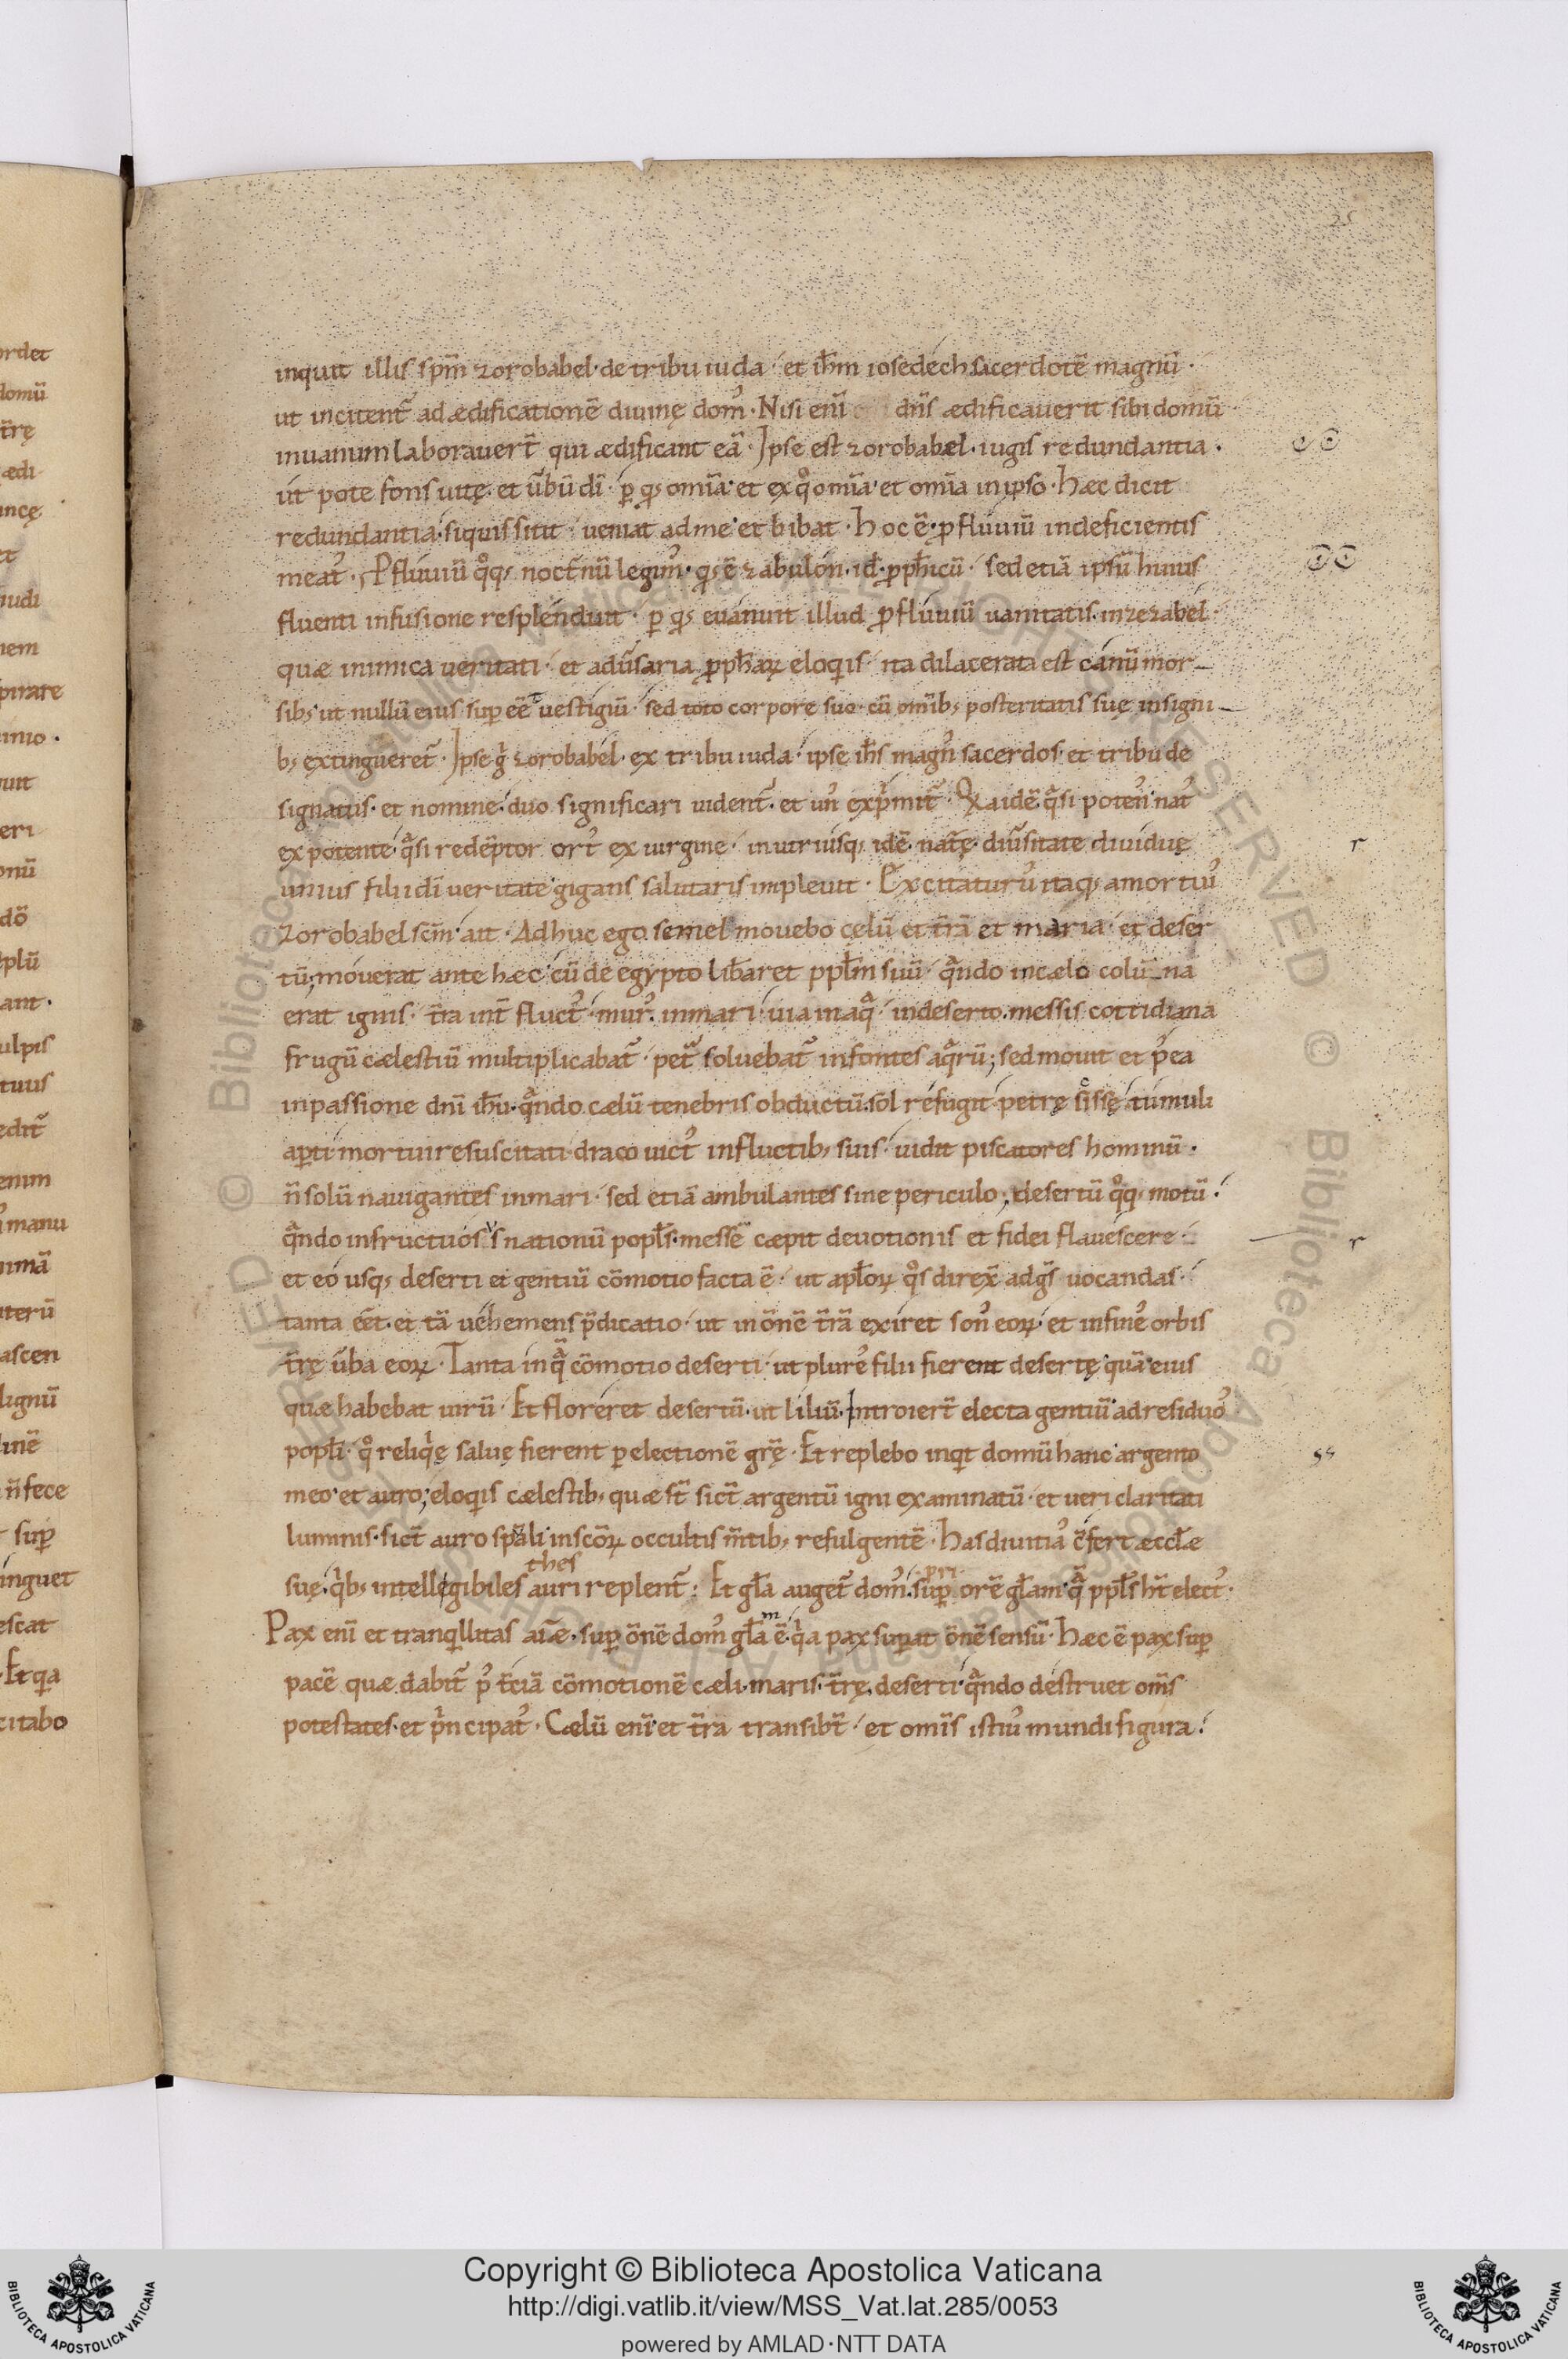 inquit illis sp̄m zorobabel· de tribu iuda· et ih̄m iosedech sacerdotē magnū·
ut incitent̄ ad ædificationē diuinę dom᷒· Nisi enī dn̄s ædificauerit sibi domū
inuanum laborauer̄t qui ædificant eā· Ipse est zorobabæl· iugis redundantia·
ut pote fons uitę· et ūbū dī· ꝑ qͥ; om̄ia· et ex qͦ om̄ia· et om̄ia in ipso· Hæc dicit
redundantia· siquis sitit· ueniat ad me· et bibat· Hoc ē· ꝓfluuiū indeficientis
meat᷒· Ꝓfluuiū qͦq; noct̄nū legim᷒· qͥ; ē zabulón· id· ꝓph̄icū· sed etiā ipsū huius
fluenti infusione resplenduit· ꝑ qͥ; euanuit illud ꝓfluuiū uanitatis· in zezabel·
quæ inimica ueritati· et adūsaria ꝓph̄aꝝ eloqͥis· ita dilacerata est canū mor
sib; ut nullū eius suꝑ eē uestigiū· sed toto corpore suo· cū om̄ib; posteritatis suę insigni
b; extingueret̄· Ipse gͥ zorobabel· ex tribu iuda· ipse ih̄s magn᷒ sacerdos· et tribu de
signatus· et nomine· duo significari uident̄· et un᷒ exp̍mit̄· Q̄a idē qͣsi poten᷒ nat᷒
ex potente· qͣsi redēptor ort᷒ ex uirgine· in utriusq; idē nat̄ę· diūsitate diuiduę
unius filii dī ueritate· gigans salutaris impleuit· Excitatur᷒ itaq; a mortiu᷒
zorobabel sc̄m· ait· Adhuc ego semel mouebo cęlū et t̄rā et maria· et deser
tū; mouerat ante hæc· cū de egypto lib̄aret ppl̄m suū· qͣndo in cælo colū na
erat ignis· t̄ra int̄ fluct᷒· mur᷒ in mari· uia in aqͣ· in deserto· messis cottidiana
frugū cælestiū multiplicabat̄· pet̄ soluebat̄ in fontes aqͣrū; sed mouit et p᷒ea
in passione dn̄i ih̄u· qͣndo cælū tenebris obductū· sol refugit· petrę scissę· tumuli
aꝑti· mortui resuscitati· draco uict᷒ in fluctib; suis· uidit piscatores hominū·
n̄ solū nauigantes in mari· sed etiā ambulantes sine periculo; desertū qͦq; motū·
qͣndo infructuós s nationū popl̄s· messē cæpit deuotionis et fidei flauescere·
et eo usq; deserti et gentiū cōmotio facta ē· ut apl̄oꝝ qͦs direx̄ ad gs̄ uocandas·
tanta ēēt· et tā uehemens p̄dicatio· ut in ōnē t̄rā exiret son᷒ eoꝝ· et in fine᷒ orbis
t̄rę ūba eoꝝ· Tanta inqͣ cōmotio deserti· ut plure᷒ filii fierent desertę quā eius
quæ habebat uirū· Et floreret desertū· ut liliū· Introier̄t electa gentiū· ad residuo᷒
popl̄i· qͦ reliqͥę saluę fierent ꝑ electionē gr̄ę· Et replebo inqͥt domū hanc· argento
meo· et auro; eloqͥis cælestib; quæ st̄ sict̄ argentū igni examinatū· et ueri claritati
luminis· sict̄ auro sp̄ali in scōꝝ occultis m̄tib; refulgentē· Has diuitia᷒ c̄fert æccl̄æ
thes pri
suę· qͥb; intellegibiles auri replent̄· Et gl̄a auget̄ dom᷒· suꝑ orē gl̄am· qͣ ppl̄s ht̄ elect᷒·
Pax enī et tranqͥllitas aīæ· suꝑ ōnē dom᷒ gl̄a m ē· qͥa pax suꝑat ōnē sensū· Hæc ē pax suꝑ
pacē quæ dabit̄ p᷒ t̄ciā cōmotionē cæli· maris· t̄rę· deserti· qͣndo destruet om̄s
potestates· et p̍ncipat᷒· Cælū enī et t̄ra transibt̄· et om̄is isti᷒ mundi figura·
Copyright © Biblioteca Apostolica Vaticana
http://digi.vatlib.it/view/MSS_Vat.lat.285/0053
powered by AMLAD·NTT DATA